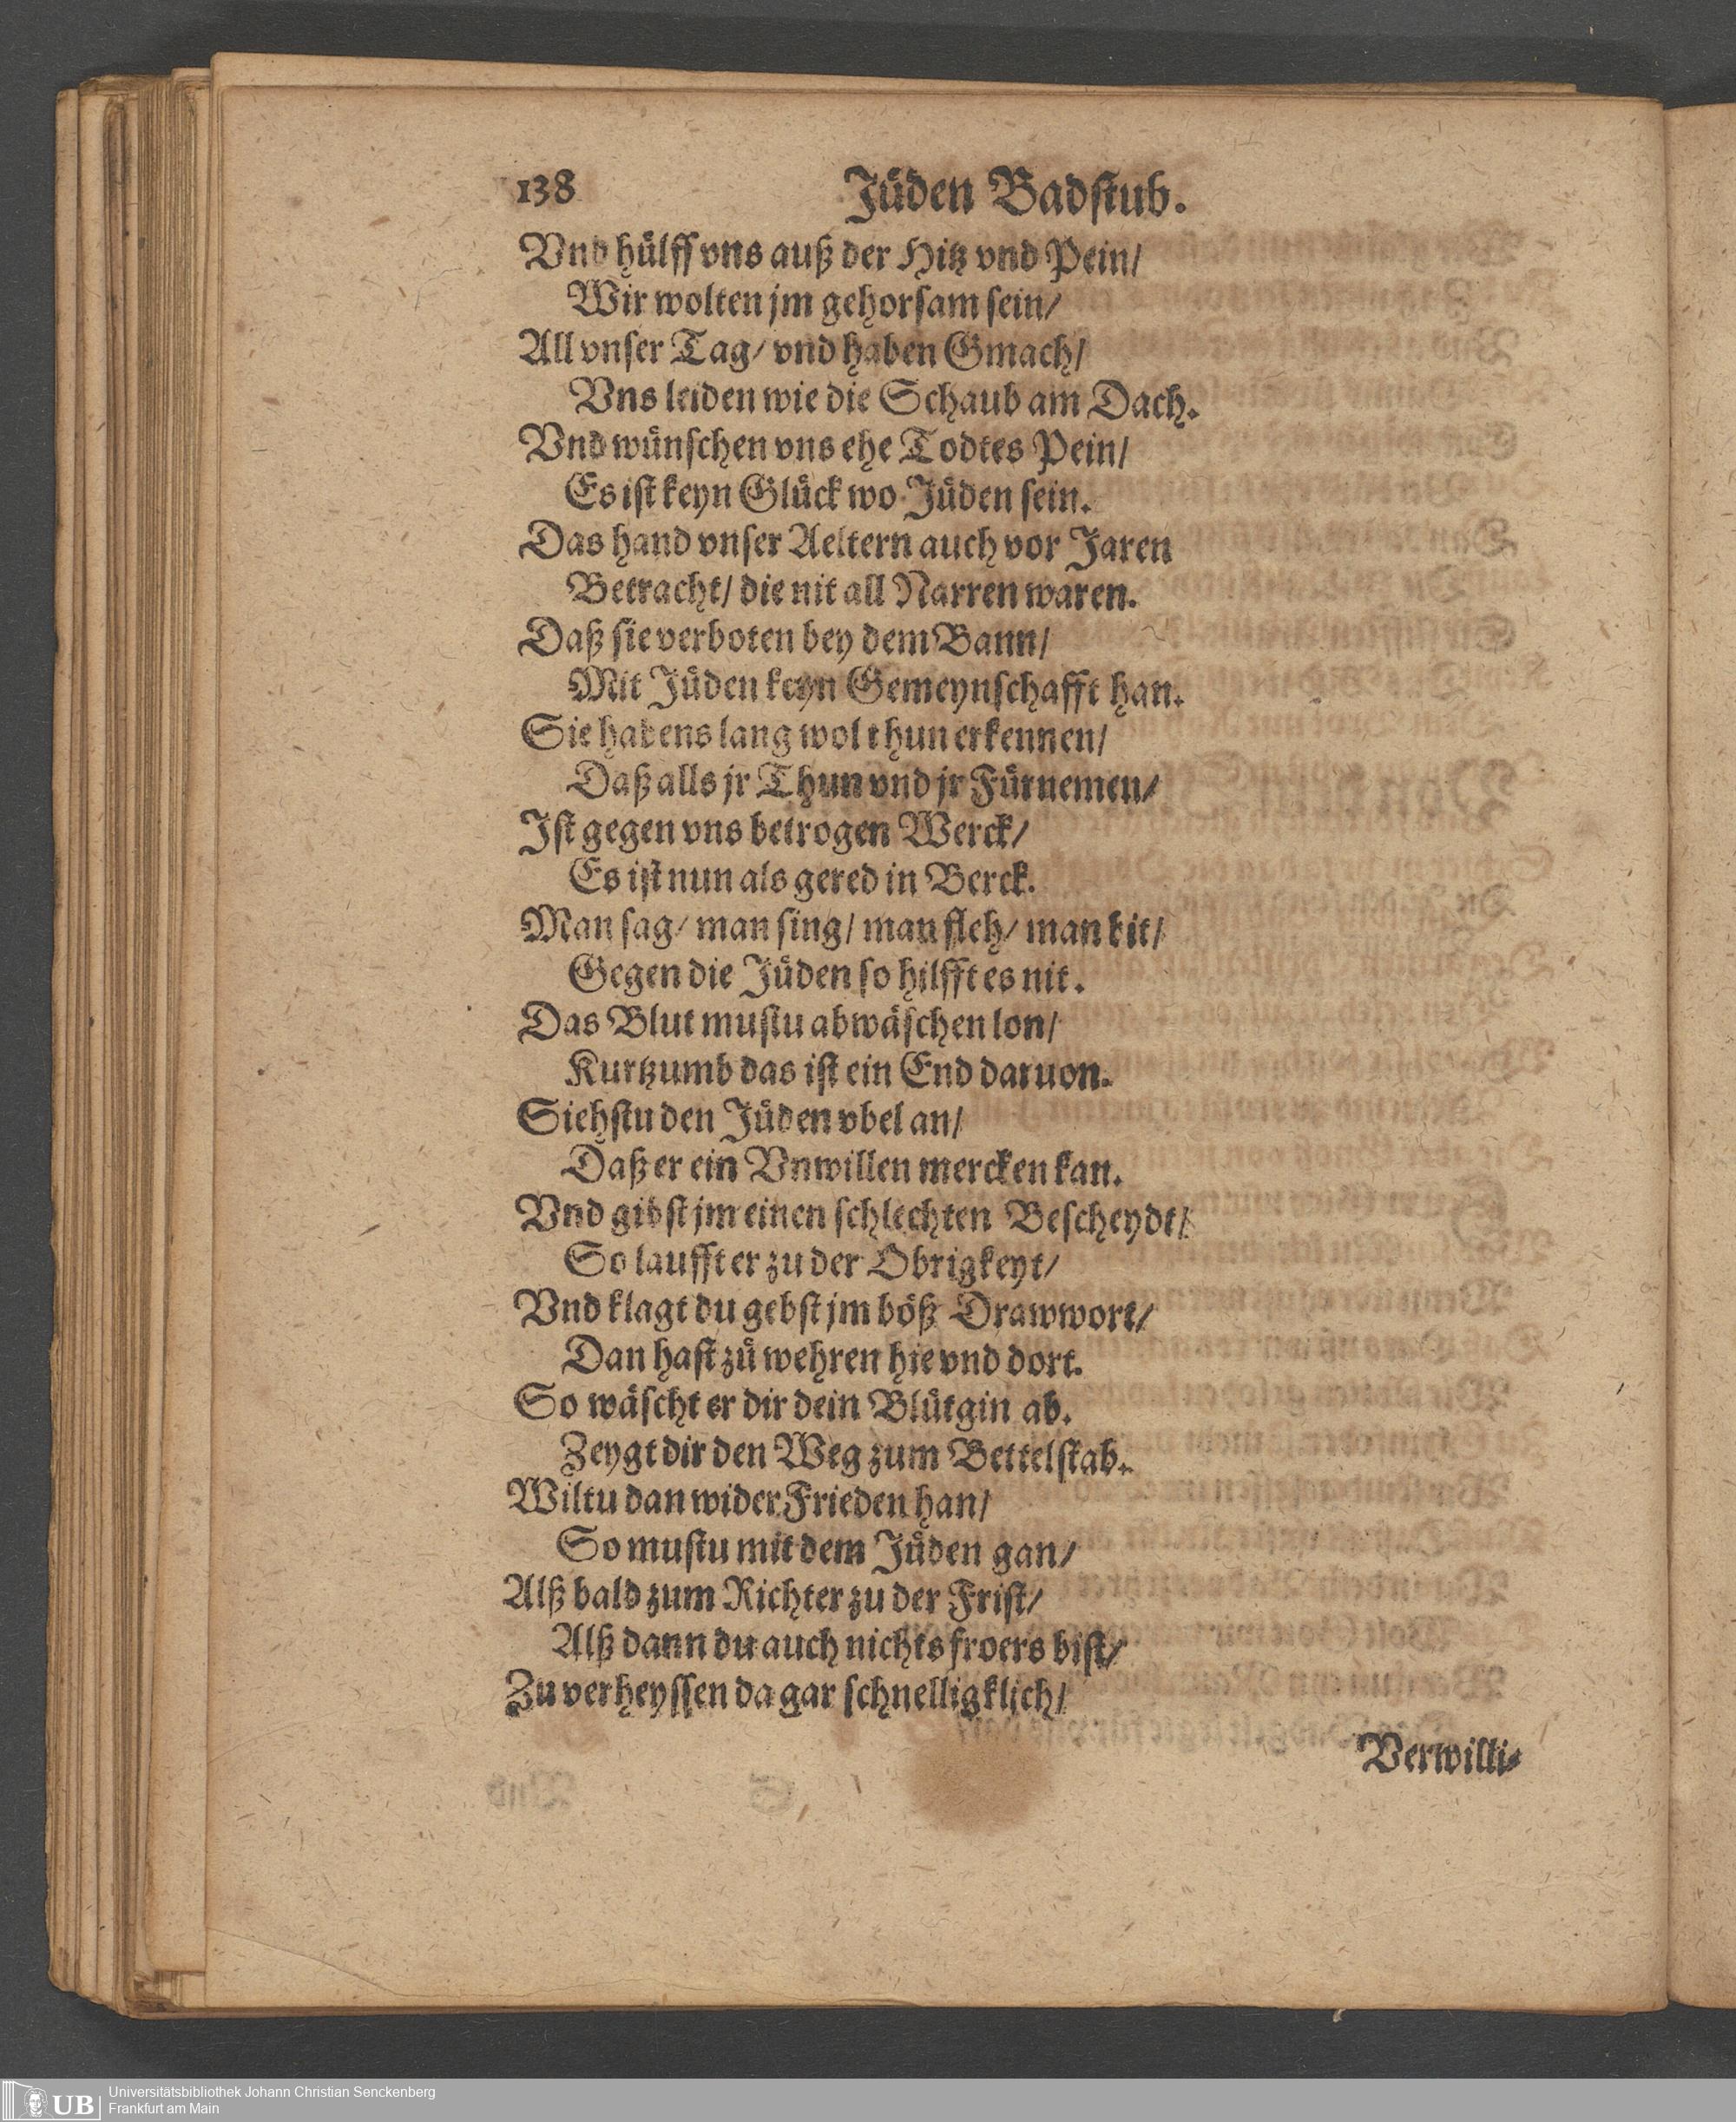 138 Jüden Badstub.
Vnd hülff vns auß der Hitz vnd Pein/
Wir wolten jm gehorsam sein/
All vnser Tag/ vnd haben Gmach/
Vns leiden wie die Schaub am Dach.
Vnd wünschen vns ehe Todtes Pein/
Es ist keyn Glück wo Jüden sein.
Das hand vnser Aeltern auch vor Jaren
Betracht/ die nit all Narren waren.
Daß sie verboten bey dem Bann/
Mit Jüden keyn Gemeynschafft han.
Sie habens lang wol thun erkennen/
Daß alls jr Thun vnd jr Fürnemen/
Ist gegen vns betrogen Werck/
Es ist nun als gered in Berck.
Man sag/ man sing/ man fleh/ man bit/
Gegen die Jüden so hilfft es nit.
Das Blut mustu abwäschen lon/
Kurtzumb das ist ein End daruon.
Siehstu den Jüden vbel an/
Daß er ein Vnwillen mercken kan.
Vnd gibst jm einen schlechten Bescheydt/
So laufft er zu der Obrigkeyt/
Vnd klagt du gebst jm böß Drawwort/
Dan hast zü wehren hie vnd dort.
So wäscht er dir dein Blütgin ab.
Zeygt dir den Weg zum Bettelstab.
Wiltu dan wider Frieden han/
So mustu mit dem Jüden gan/
Alß bald zum Richter zu der Frist/
Alß dann du auch nichts froers bist/
Zu verheyssen da gar schnelligklich/
Verwilli⸗
UB Universitätsbibliothek Johann Christian Senckenberg
Frankfurt am Main